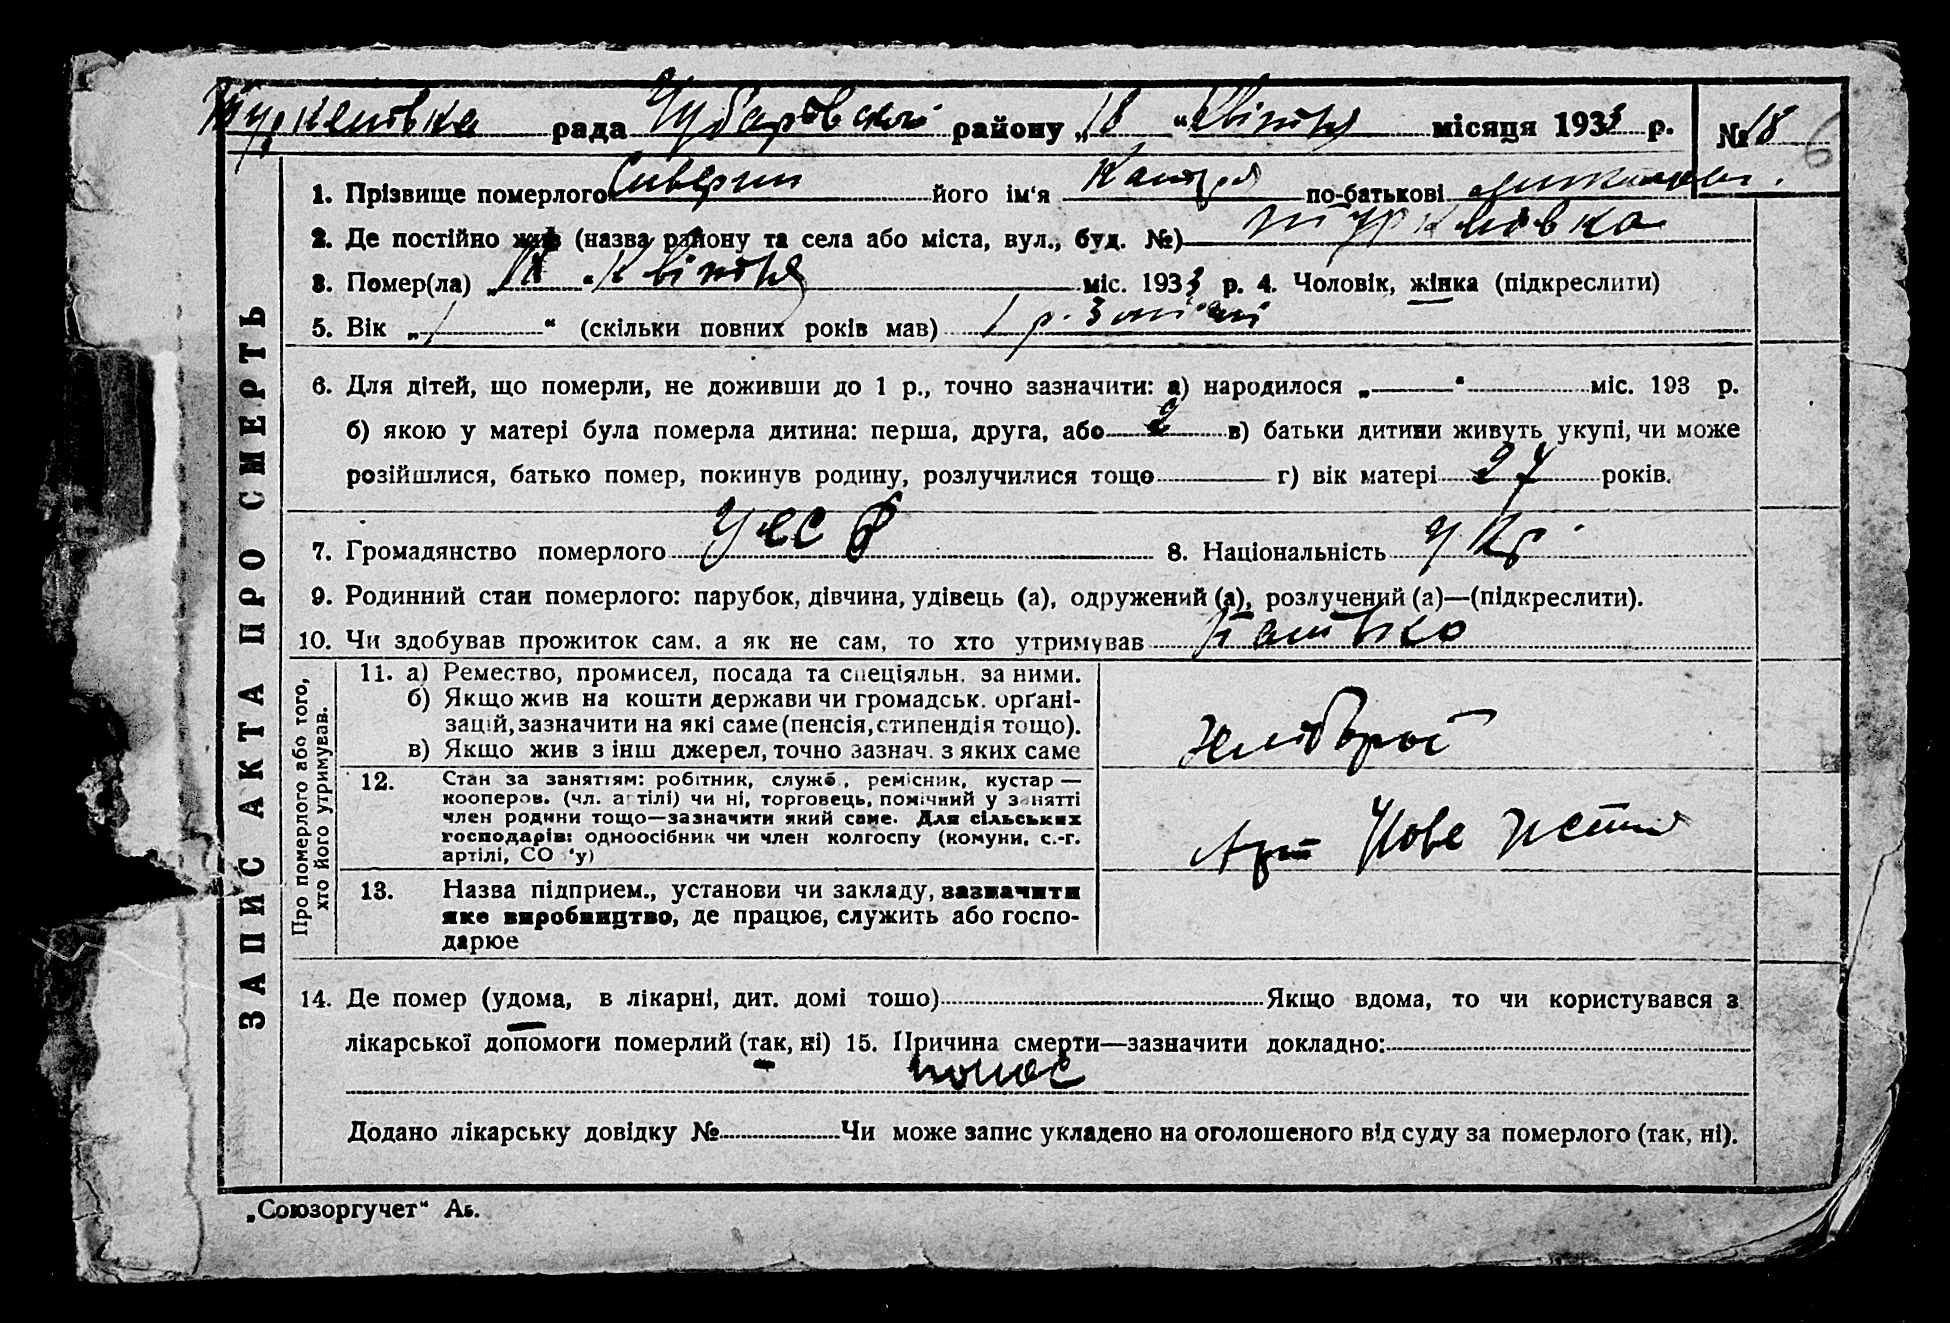 Туркенівка рада Чубарівської району „18 “ Квітня місяця 1933 р. № 18 6
1. Прізвище померлого Сиверин його ім‘я Катря по-батькові
2. Де постійно жив (назва району та села або міста, вул., буд. №) Туркенівка
3. Помер(ла) „18 “ Квітня міс. 1933 р. 4. Чоловік, жінка (підкреслити)
5. Вік „ 1 “ (скільки повних років мав) 1 р.
6. Для дітей, що померли, не доживши до 1 р., точно зазначити: а) народилося „ “ міс. 193 р.
б) якою у матері була померла дитина: перша, друга, або 2 в) батьки дитини живуть укупі, чи може
розійшлися, батько помер, покинув родину, розлучилися тощо г) вік матері 27 років.
7. Громадянство померлого УССР 8. Національність Укр.
9. Родинний стан померлого: парубок, дівчина, удівець (а), одружений (а), розлучений (а)—(підкреслити).
10. Чи здобував прожиток сам, а як не сам, то хто утримував Батько
ЗАПИС АКТА ПРО СМЕРТЬ
Про померлого або того,
хто його утримував.
11. а) Ремество, промисел, посада та спеціяльн. за ними.
б) Якщо жив на кошти держави чи громадськ. орґані-
зацій, зазначити на які саме (пенсія, стипендія тощо).
в) Якщо жив з інш джерел, точно зазнач. з яких саме
Хлібороб
12. Стан за заняттям: робітник, служб., ремісник, кустар —
кооперов. (чл. артілі) чи ні, торговець, помічний у занятті
член родини тощо—зазначити який саме. Для сільських
господарів: одноосібник чи член колгоспу (комуни, с.-г.
артілі, СО 'у)
Арт Нове Життя
13. Назва підприєм., установи чи закладу, зазначити
яке виробництво, де працює, служить або госпо-
дарює
14. Де помер (удома, в лікарні, дит. домі тощо) Якщо вдома, то чи користувався з
лікарської допомоги померлий (так, ні) 15. Причина смерти—зазначити докладно:
понос
Додано лікарську довідку № Чи може запис укладено на оголошеного від суду за померлого (так, ні).
„Союзоргучет“ Аб.